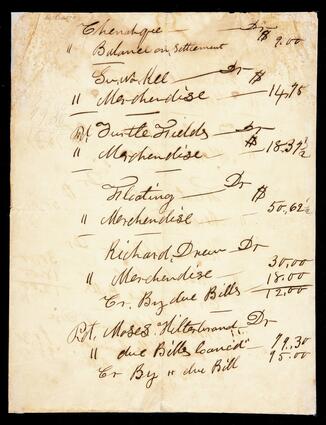 Chenahque — Dr $
" Balance on Settlement 9.00
Kee — Dr $
" Merchendise — 14,75
Turtle Fields — Dr $
" Merchendise — 18.37½
Floating — Dr $
" Merchendise — 50,62½
Richard Drew Dr
" Merchendise — 30.00
Cr. By due Bills — 18.00
12.00
Moses Hilterbrand Dr
" due Bills loaned" 79.30
Cr By " due Bill 75.00